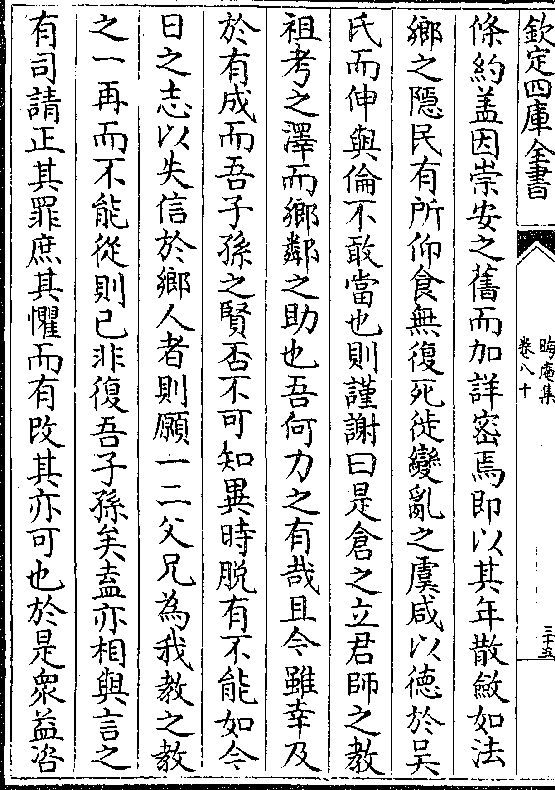 欽定四庫全書
晦庵集
卷八十
三十五
條約盖因崇安之舊而加詳密焉即以其年散斂如法
鄉之隱民有所仰食無復死徙變亂之虞咸以德於吳
氏而伸與倫不敢當也則謹謝曰是倉之立君師之教
祖考之澤而鄉鄰之助也吾何力之有哉且今雖幸及
於有成而吾子孫之賢否不可知異時脱有不能如今
日之志以失信於鄉人者則願一二父兄為我教之教
之一再而不能從則已非復吾子孫矣盍亦相與言之
有司請正其罪庶其懼而有改其亦可也於是衆益咨